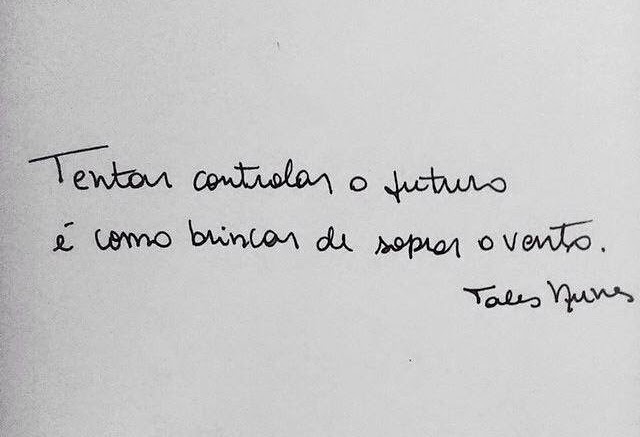 Tentar controlar o futuro
é como brincar de soprar o vento.
Tales Nunes